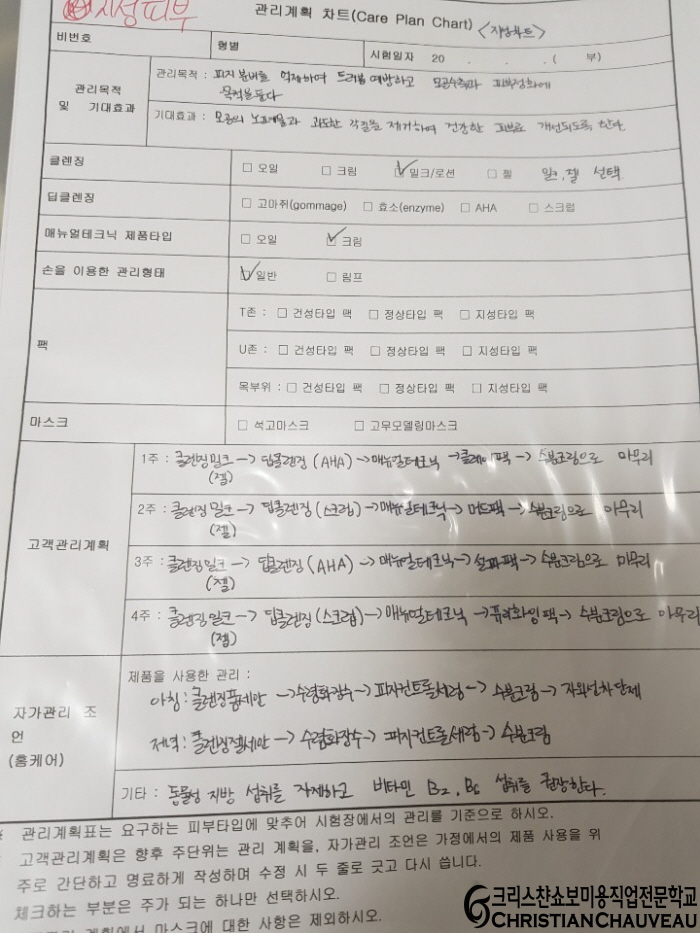 지성피부
관리계획 차트(Care Plan Chart) <지방차트>
비번호 형별 시험일자 20 . . . ( 부)
관리목적 및 기대효과
관리목적 : 피지 분비를 억제하여 트러블 예방하고 모공수축과 피부정화에
목적을 둔다
기대효과 : 모공의 노폐물과 과도한 각질을 제거하여 건강한 피부로 개선되도록 한다.
클렌징 □ 오일 □ 크림 ☑ 밀크/로션 □ 젤 밀크, 젤 선택
딥클렌징 □ 고마쥐(gommage) □ 효소(enzyme) □ AHA □ 스크럽
매뉴얼테크닉 제품타입 □ 오일 ☑ 크림
손을 이용한 관리형태 ☑ 일반 □ 림프
팩
T존 : □ 건성타입 팩 □ 정상타입 팩 □ 지성타입 팩
U존 : □ 건성타입 팩 □ 정상타입 팩 □ 지성타입 팩
목부위 : □ 건성타입 팩 □ 정상타입 팩 □ 지성타입 팩
마스크 □ 석고마스크 □ 고무모델링마스크
고객관리계획
1주 : 클렌징밀크 -> 딥클렌징 (AHA) -> 매뉴얼테크닉 -> 클레이팩 -> 수분크림으로 마무리
(젤)
2주 : 클렌징밀크 -> 딥클렌징 (스크럽) -> 매뉴얼테크닉 -> 머드팩 -> 수분크림으로 마무리
(젤)
3주 : 클렌징밀크 -> 딥클렌징 (AHA) -> 매뉴얼테크닉 -> 설파팩 -> 수분크림으로 마무리
(젤)
4주 : 클렌징밀크 -> 딥클렌징 (스크럽) -> 매뉴얼테크닉 -> 퓨리화잉팩 -> 수분크림으로 마무리
(젤)
자가관리 조언
(홈케어)
제품을 사용한 관리 :
아침 : 클렌징폼세안 -> 수렴화장수 -> 피지컨트롤세럼 -> 수분크림 -> 자외선차단제
저녁 : 클렌징젤세안 -> 수렴화장수 -> 피지컨트롤세럼 -> 수분크림
기타 : 동물성 지방 섭취를 자제하고 비타민 B2, B6 섭취를 권장한다.
관리계획표는 요구하는 피부타입에 맞추어 시험장에서의 관리를 기준으로 하시오.
고객관리계획은 향후 주단위는 관리 계획을, 자가관리 조언은 가정에서의 제품 사용을 위
주로 간단하고 명료하게 작성하며 수정 시 두 줄로 긋고 다시 씁니다.
체크하는 부분은 주가 되는 하나만 선택하시오.
계획에서 마스크에 대한 사항은 제외하시오.
크리스챤쇼보미용직업전문학교
CHRISTIAN CHAUVEAU